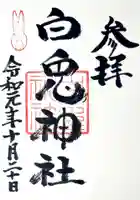 参拝
白兎神社
令和元年十月二十日